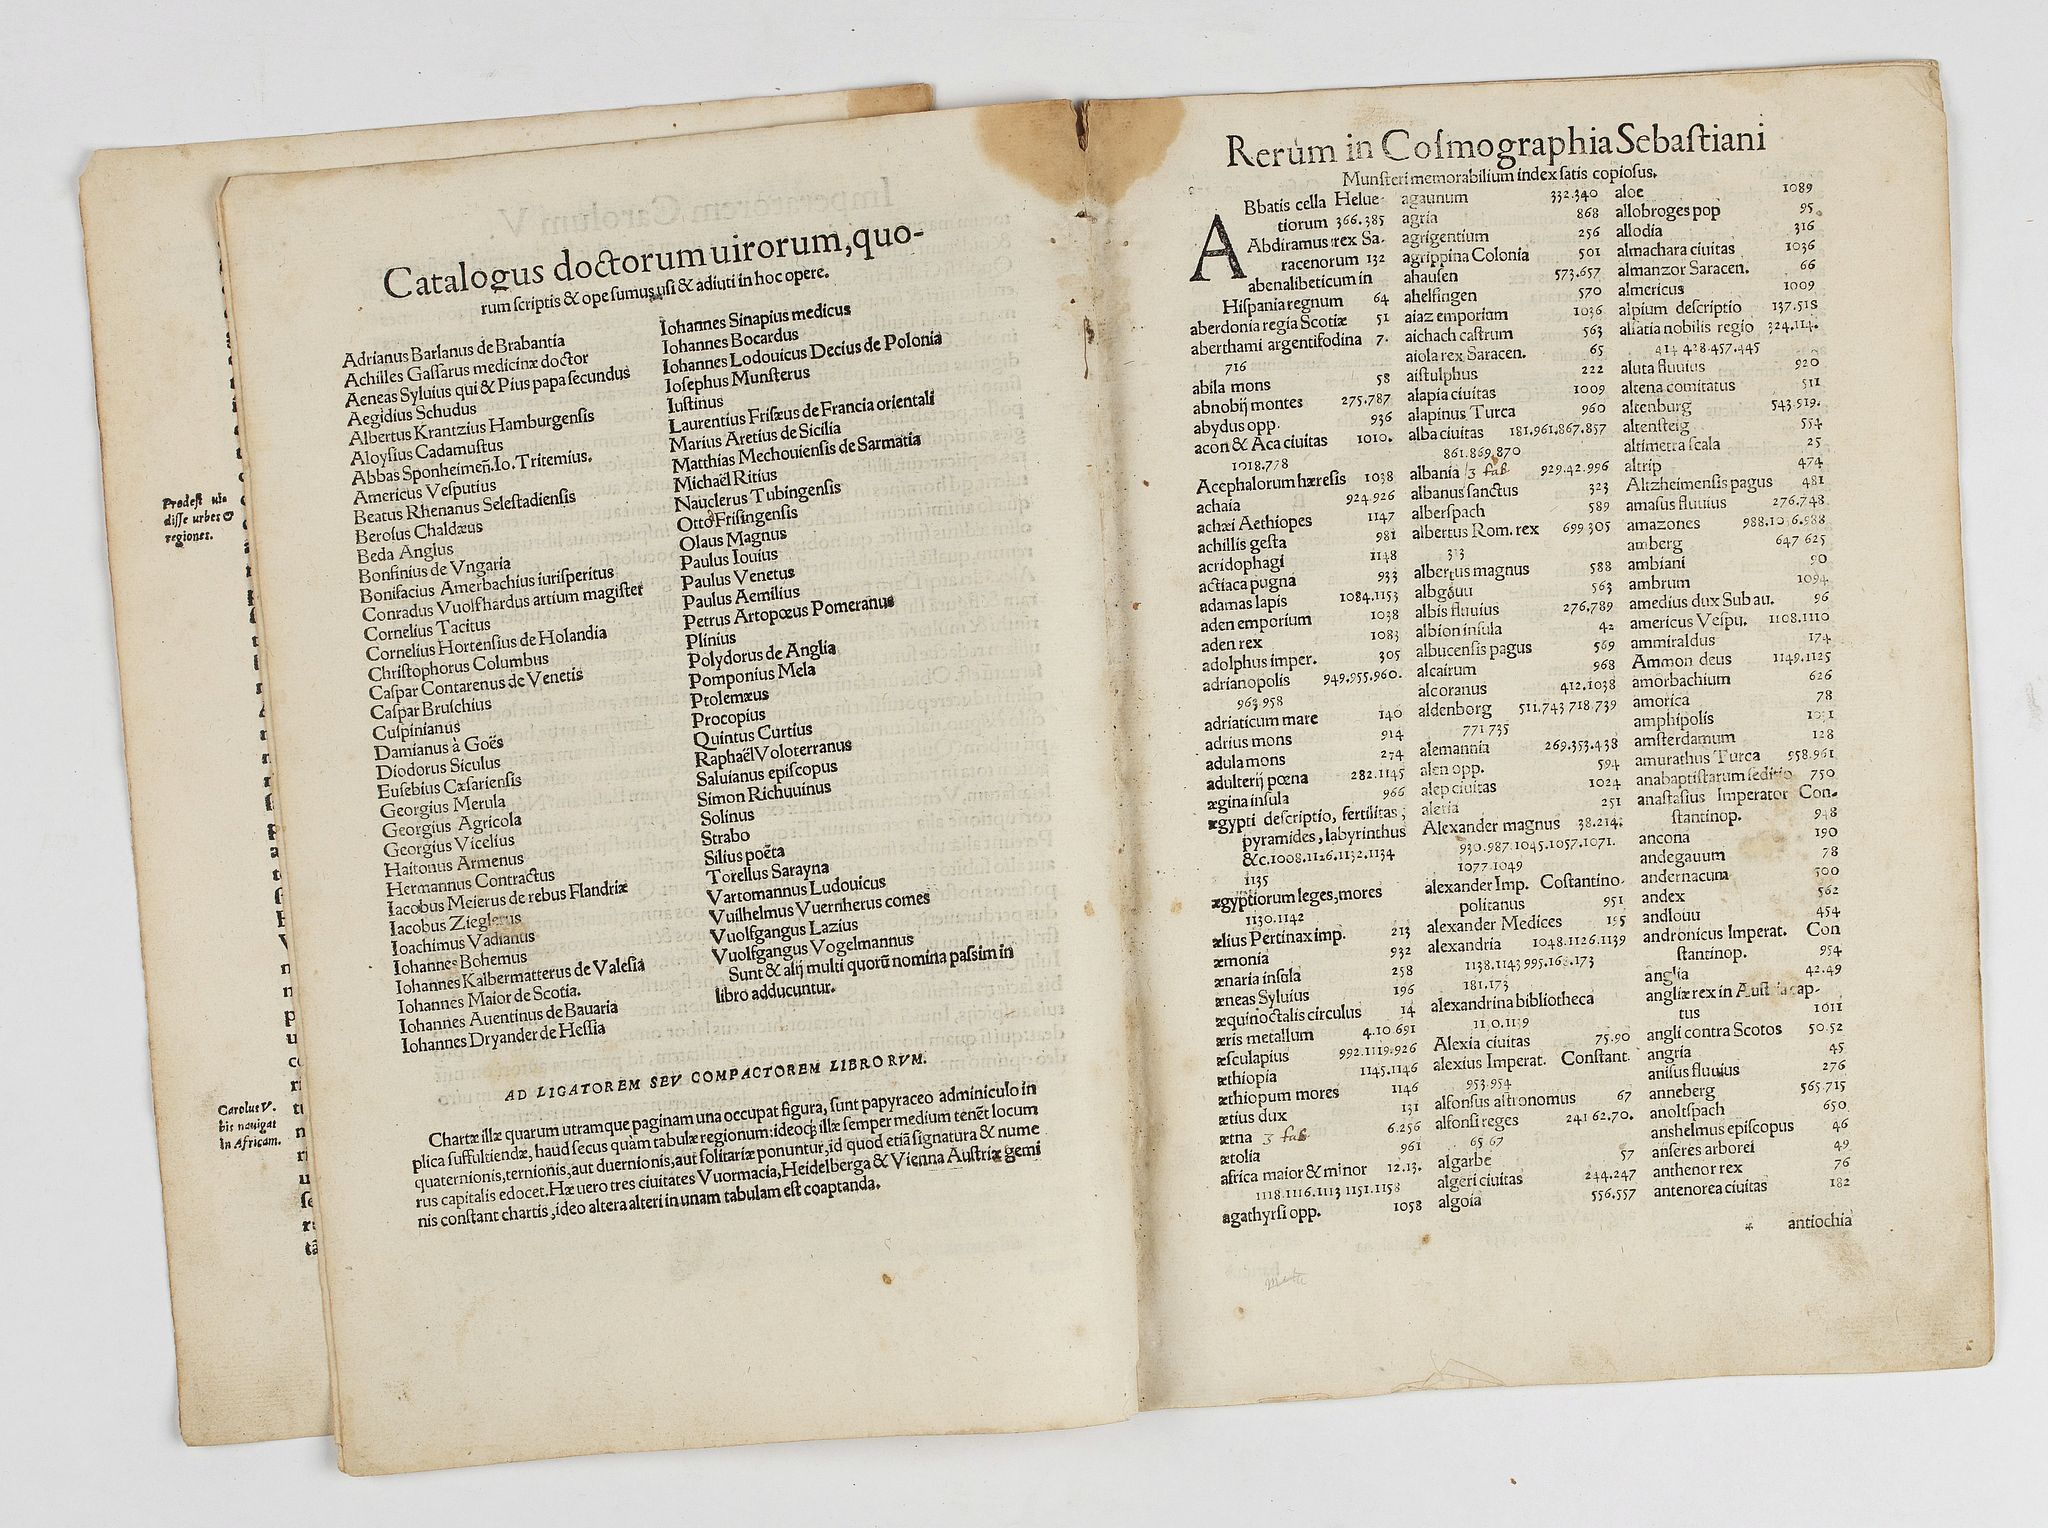 Prodest
disse urbes &
regiones.
Carolus V.
bis nauigat
in Africam.
Catalogus doctorum uirorum, quo-
rum scriptis & ope sumus usi & adiuti in hoc opere.
Adrianus Barlanus de Brabantia
Achilles Gassarus medicinæ doctor
Aeneas Syluius qui & Pius papa secundus
Aegidius Schudus
Albertus Krantzius Hamburgensis
Aloysius Cadamustus
Abbas Sponheimeñ. Io. Tritemius.
Americus Vesputius
Beatus Rhenanus Selestadiensis
Berosus Chaldæus
Beda Anglus
Bonfinius de Vngaria
Bonifacius Amerbachius iurisperitus
Conradus Vuolfhardus artium magister
Cornelius Tacitus
Cornelius Hortensius de Holandia
Christophorus Columbus
Caspar Contarenus de Venetis
Caspar Bruschius
Cuspinianus
Damianus à Goës
Diodorus Siculus
Eusebius Cæsariensis
Georgius Merula
Georgius Agricola
Georgius Vicelius
Haitonus Armenus
Hermannus Contractus
Iacobus Meierus de rebus Flandriæ
Iacobus Zieglerus
Ioachimus Vadianus
Iohannes Bohemus
Iohannes Kalbermatterus de Valesia
Iohannes Maior de Scotia.
Iohannes Auentinus de Bauaria
Iohannes Dryander de Hessia
Iohannes Sinapius medicus
Iohannes Bocardus
Iohannes Lodouicus Decius de Polonia
Iosephus Munsterus
Iustinus
Laurentius Frisæus de Francia orientali
Marius Aretius de Sicilia
Matthias Mechouiensis de Sarmatia
Michaël Ritius
Nauclerus Tubingensis
Otto Frisingensis
Olaus Magnus
Paulus Iouius
Paulus Venetus
Paulus Aemilius
Petrus Artopœus Pomeranus
Plinius
Polydorus de Anglia
Pomponius Mela
Ptolemæus
Procopius
Quintus Curtius
Raphaël Voloterranus
Saluianus episcopus
Simon Richuuinus
Solinus
Strabo
Silius poëta
Torellus Sarayna
Vartomannus Ludouicus
Vuilhelmus Vuernherus comes
Vuolfgangus Lazius
Vuolfgangus Vogelmannus
Sunt & alij multi quorũ nomina passim in
libro adducuntur.
AD LIGATOREM SEV COMPACTOREM LIBRORVM.
Chartæ illæ quarum utramque paginam una occupat figura, sunt papyraceo adminiculo in
plica suffultiendæ, haud secus quàm tabulæ regionum: ideoq́; illæ semper medium tenẽt locum
quaternionis, ternionis, aut duernionis, aut solitariæ ponuntur, id quod etiã signatura & nume
rus capitalis edocet. Hæ uero tres ciuitates Vuormacia, Heidelberga & Vienna Austriæ gemi
nis constant chartis, ideo altera alteri in unam tabulam est coaptanda.
Rerum in Cosmographia Sebastiani
Munsteri memorabilium index satis copiosus.
ABbatis cella Helue-
tiorum 366.385
Abdiramus rex Sa-
racenorum 132
abenalibeticum in
Hispania regnum 64
aberdonia regia Scotiæ 51
aberthami argentifodina 7.
716
abila mons 58
abnobij montes 275.787
abydus opp. 936
acon & Aca ciuitas 1010.
1018.778
Acephalorum hæresis 1038
achaia 924.926
achæi Aethiopes 1147
achillis gesta 981
acridophagi 1148
actiaca pugna 933
adamas lapis 1084.1153
aden emporium 1038
aden rex 1083
adolphus imper. 305
adrianopolis 949.955.960.
963.958
adriaticum mare 140
adrius mons 914
adula mons 274
adulterij pœna 282.1145
ægina insula 966
ægypti descriptio, fertilitas,
pyramides, labyrinthus
&c. 1008.1126.1132.1134
1135
ægyptiorum leges, mores
1130.1142
ælius Pertinax imp. 213
æmonia 932
ænaria insula 258
æneas Syluius 196
æquinoctalis circulus 14
æris metallum 4.10.691
æsculapius 992.1119.926
æthiopia 1145.1146
æthiopum mores 1146
ætius dux 131
ætna 3 fab. 6.256
ætolia 961
africa maior & minor 12.13.
1118.1116.1113 1151.1158
agathyrsi opp. 1058
agaunum 332.340
agria 868
agrigentium 256
agrippina Colonia 501
ahausen 573.657
ahelfingen 570
aiaz emporium 1036
aichach castrum 563
aiola rex Saracen. 65
aistulphus 222
alapia ciuitas 1009
alapinus Turca 960
alba ciuitas 181.961.867.857
861.869.870
albania 3 fab. 929.42.996
albanus sanctus 323
alberspach 589
albertus Rom. rex 699 305
313
albertus magnus 588
albgöuu 563
albis fluuius 276.789
albion insula 42
albucensis pagus 569
alcairum 968
alcoranus 412.1038
aldenborg 511.743.718.739
771 735
alemannia 269.353.438
alen opp. 594
alep ciuitas 1024
aleria 251
Alexander magnus 38.214.
930.987.1045.1057.1071.
1077.1049
alexander Imp. Costantino-
politanus 951
alexander Medices 195
alexandria 1048.1126.1139
181.173
alexandrina bibliotheca
Alexia ciuitas 75.90
alexius Imperat. Constant.
953.954
alfonsus astronomus 67
alfonsi reges 241 62.70.
65 67
algarbe 57
algeri ciuitas 244.247
algoia 556.557
aloe 1089
allobroges pop 95.
allodia 316
almachara ciuitas 1036
almanzor Saracen. 66
almericus 1009
alpium descriptio 137.518
alsatia nobilis regio 324.114.
414 428.457.445
aluta fluuius 920
altena comitatus 511
altenburg 543.919.
altensteig 554
altimetra scala 25
altrip 474
Altzheimensis pagus 481
amasus fluuius 276.748.
amazones
amberg 647 625
ambiani 90
ambrum 1094
amedius dux Subau. 96
americus Vespu. 1108.1110
ammiraldus 174
Ammon deus 1149.1125
amorbachium 626
amorica 78
amphipolis
amsterdamum 128
amurathus Turca 958.961
anabaptistarum seditio 750
anastasius Imperator Con-
stantinop. 948
ancona 190
andegauum 78
andernacum 500
andex 562
andlouu 454
andronicus Imperat. Con
stantinop. 954
anglia 42.49
angliæ rex in Austria cap-
tus 1011
angli contra Scotos 50.52
angria 45
anisus fluuius 276
anneberg 565.715
anoltspach 650
anshelmus episcopus 46
anseres arborei 49
anthenor rex 76
antenorea ciuitas 182
* antiochia